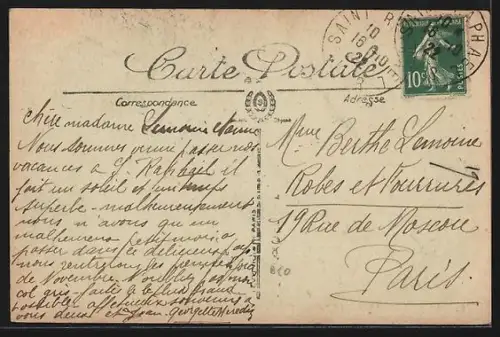 SAINT RAPHAEL
10
10c
POSTES
Carte Postale
Correspondance
Adresse
chère madame Lemoine
Nous sommes venus passer nos
vacances a St. Raphael il
fait un soleil et un temps
superbe - malheureusement
nous n'avons qu'un
malheureux petit mois a
passer dans ce délicieux
nous rentrerons les premiers
de Novembre N'oubliez pas mon
col gris - faites-le le plus grand
possible affectueux souvenirs a
vous deux et Jean. Georgette
Mme Berthe Lemoine
Robes et Fourrures
19 Rue de Moscou
Paris.